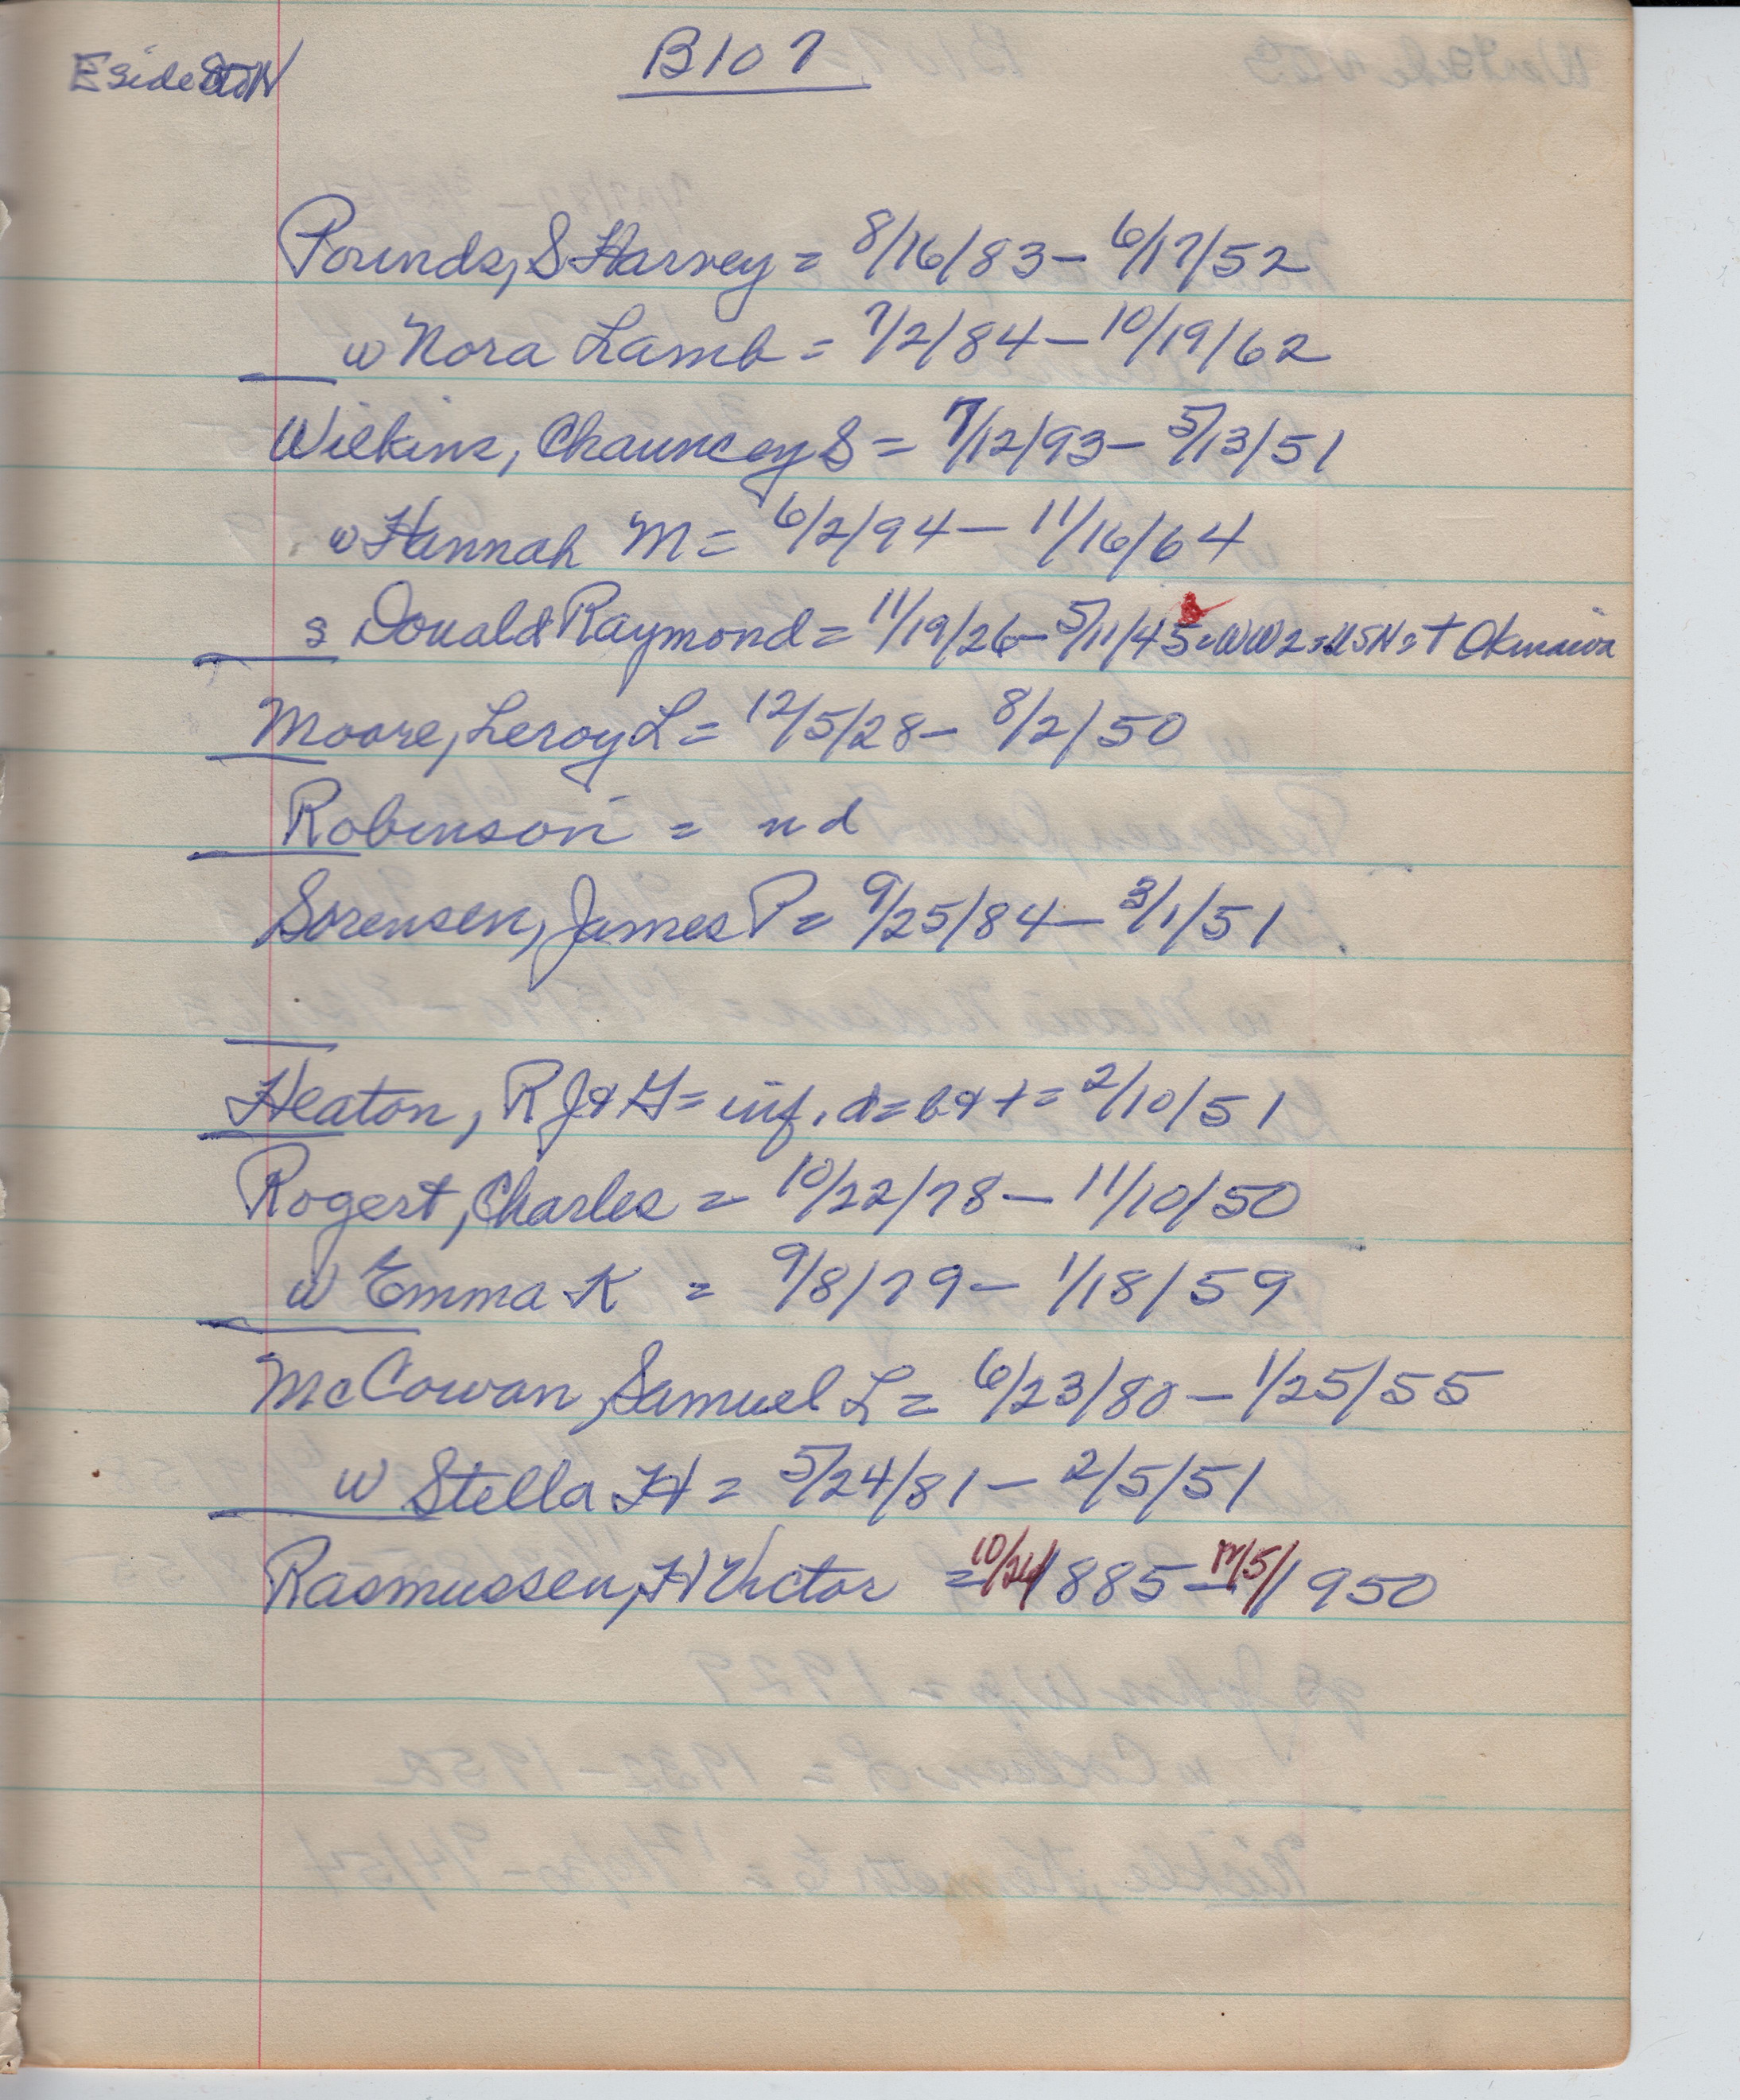 E side S to N
B107
Pounds, S Harvey = 8/16/83 - 6/17/52
w Nora Lamb = 7/2/84 - 10/19/62
Wilkins, Chauncey S = 7/12/93 - 5/13/51
w Hannah M = 6/2/94 - 11/16/64
s Donald Raymond = 11/19/26 - 5/11/45 = WW2 = USN = + Okinawa
Moore, Leroy L = 12/5/28 - 8/2/50
Robinson = nd
Sorensen, James P = 9/25/84 - 3/1/51
Heaton, R J & G = inf. d = b & + = 2/10/51
Rogert, Charles = 10/22/78 - 11/10/50
w Emma K = 9/8/79 - 1/18/59
McCowan, Samuel L = 6/23/80 - 1/25/55
w Stella H = 5/24/81 - 2/5/51
Rasmussen, H Victor = 10/24/1885 - 12/5/1950